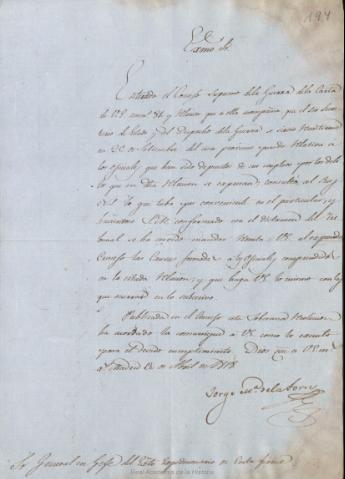 194
Exmô Sr.
Enterado el Consejo Supremo dela Guerra dela Carta
de V.E. numº 81 y Relacion que a ella acompaña, que el Sor Secre
tario de Estado y del Despacho dela Guerra se sirvió remitirme
en 20 de Setiembre del año proximo pasado relativa a
los oficiales que han sido depuestos de sus empleos por los deli
tos que en dicha Relacion se expresan; consultó al Rey
N.S. lo que tubo por conveniente en el particular, y
habiendose S.M. conformado con el dictamen del Tri
bunal se ha servido mandar remita V.E. al expresado
Consejo las Causas formadas a los oficiales comprendidos
en la citada Relacion; y que haga V.E. lo mismo con las
que ocurran en lo subcesivo.
Publicada en el Consejo esta Soberana resolucion
ha acordado la comunique a V.E. como lo executo
para el devido cumplimiento. Dios gue a V.E. ms
as. Madrid de Abril de 1818.
Jorge Mª dela Torre
Sr General en Gefe del Exto Expedicionario de Costa firme
Real Academia de la Historia